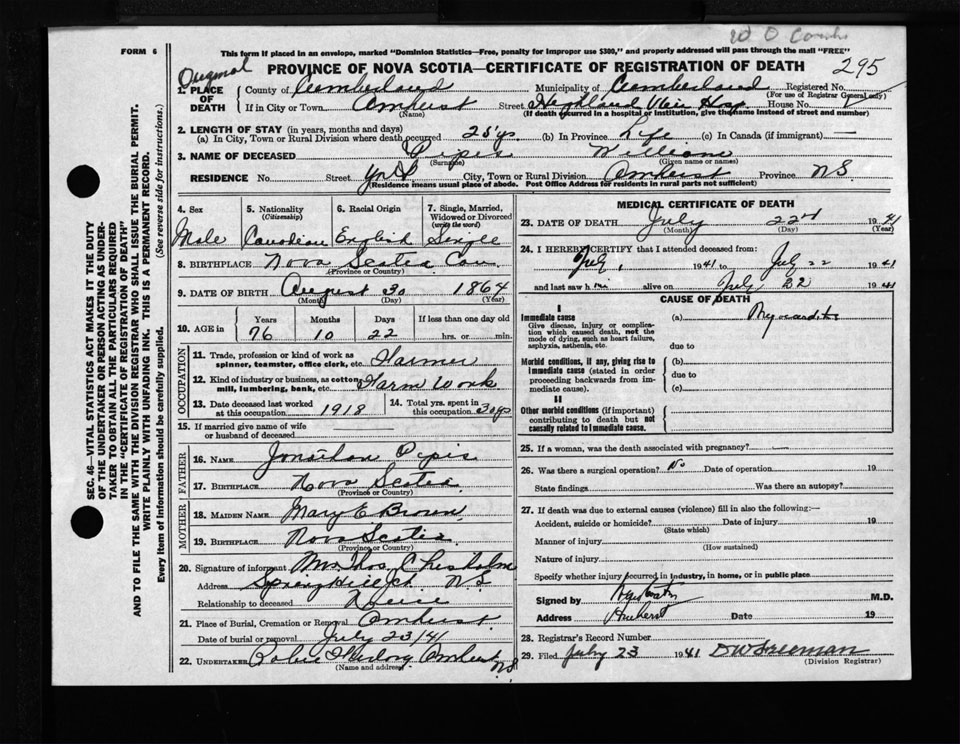 FORM 6
This form if placed in an envelope, marked "Dominion Statistics—Free, penalty for improper use $300," and properly addressed will pass through the mail "FREE"
PROVINCE OF NOVA SCOTIA—CERTIFICATE OF REGISTRATION OF DEATH 295
Original
1. PLACE OF DEATH County of Cumberland Municipality of Cumberland Registered No.
(For use of Registrar General only)
If in City or Town Amherst Street Highland View Hosp House No.
(Name) (If death occurred in a hospital or institution, give the name instead of street and number)
2. LENGTH OF STAY (in years, months and days)
(a) In City, Town or Rural Division where death occurred 25 ys (b) In Province Life (c) In Canada (if immigrant) —
3. NAME OF DECEASED Pipes William
(Surname) (Given name or names)
RESIDENCE No. Street City, Town or Rural Division Amherst Province N.S.
(Residence means usual place of abode. Post Office Address for residents in rural parts not sufficient)
4. Sex 5. Nationality (Citizenship) 6. Racial Origin 7. Single, Married, Widowed or Divorced (write the word)
Male Canadian English Single
8. BIRTHPLACE Nova Scotia Can
(Province or Country)
9. DATE OF BIRTH August 30 1864
(Month) (Day) (Year)
10. AGE in Years Months Days If less than one day old
76 10 22 hrs. or min.
OCCUPATION
11. Trade, profession or kind of work as spinner, teamster, office clerk, etc. Farmer
12. Kind of industry or business, as cotton mill, lumbering, bank, etc. Farm Work
13. Date deceased last worked at this occupation 1918 14. Total years spent in this occupation 30 ys
15. If married give name of wife or husband of deceased
FATHER
16. NAME Jonathan Pipes
17. BIRTHPLACE Nova Scotia
(Province or Country)
MOTHER
18. MAIDEN NAME Mary E Brown
19. BIRTHPLACE Nova Scotia
(Province or Country)
20. Signature of informant Mrs. Thos. Chisholm
Address Spring Hill Jct. N.S.
Relationship to deceased Niece
21. Place of Burial, Cremation or Removal Amherst
Date of burial or removal July 23/41
22. UNDERTAKER Amherst N.S.
(Name and address)
MEDICAL CERTIFICATE OF DEATH
23. DATE OF DEATH July 22nd 1941
(Month) (Day) (Year)
24. I HEREBY CERTIFY that I attended deceased from:
July 1 1941 to July 22 1941
and last saw him alive on July 22 1941
CAUSE OF DEATH
I
Immediate cause (a) Myocarditis
Give disease, injury or complication which caused death, not the mode of dying, such as heart failure, asphyxia, asthenia, etc. due to
Morbid conditions, if any, giving rise to immediate cause (stated in order proceeding backwards from immediate cause). (b)
due to
(c)
II
Other morbid conditions (if important) contributing to death but not causally related to immediate cause.
25. If a woman, was the death associated with pregnancy?
26. Was there a surgical operation? No Date of operation 19
State findings Was there an autopsy?
27. If death was due to external causes (violence) fill in also the following:—
Accident, suicide or homicide? Date of injury 19
(State which)
Manner of injury
(How sustained)
Nature of injury
Specify whether injury occurred in industry, in home, or in public place
Signed by M.D.
Address Amherst Date 19
28. Registrar's Record Number
29. Filed July 23 1941 D W Freeman
(Division Registrar)
SEC. 46—VITAL STATISTICS ACT MAKES IT THE DUTY
OF THE UNDERTAKER OR PERSON ACTING AS UNDER-
TAKER TO OBTAIN ALL THE PARTICULARS REQUIRED
IN THE "CERTIFICATE OF REGISTRATION OF DEATH"
AND TO FILE THE SAME WITH THE DIVISION REGISTRAR WHO SHALL ISSUE THE BURIAL PERMIT.
WRITE PLAINLY WITH UNFADING INK. THIS IS A PERMANENT RECORD.
Every item of information should be carefully supplied. (See reverse side for instructions.)